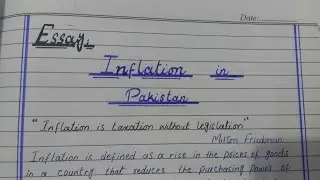 Date:
Essay:
Inflation in
Pakistan
"Inflation is taxation without legislation"
Milton Friedman
Inflation is defined as a rise in the prices of goods
in a country that reduces the purchasing power of